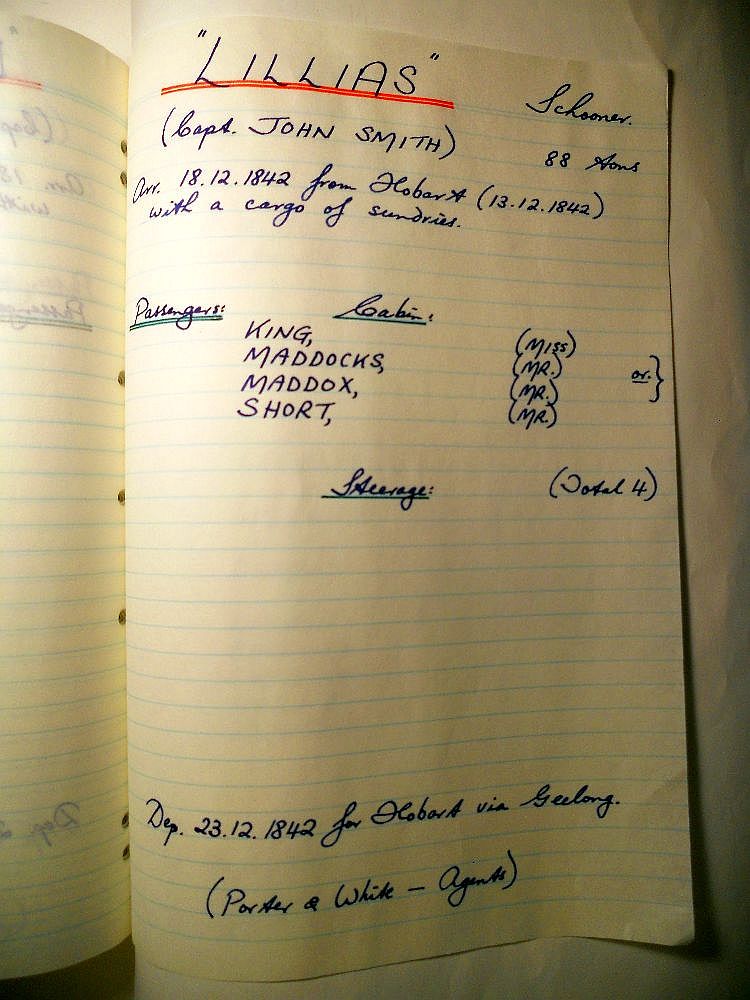 "LILLIAS"
Schooner.
(Capt. JOHN SMITH)
88 tons
Arr. 18.12.1842 from Hobart (13.12.1842)
with a cargo of sundries.
Passengers: Cabin:
KING, (MISS)
MADDOCKS, (MR.)
MADDOX, (MR.) or. }
SHORT, (MR.)
Steerage: (Total 4)
Dep. 23.12.1842 for Hobart via Geelong.
(Porter & White — Agents)